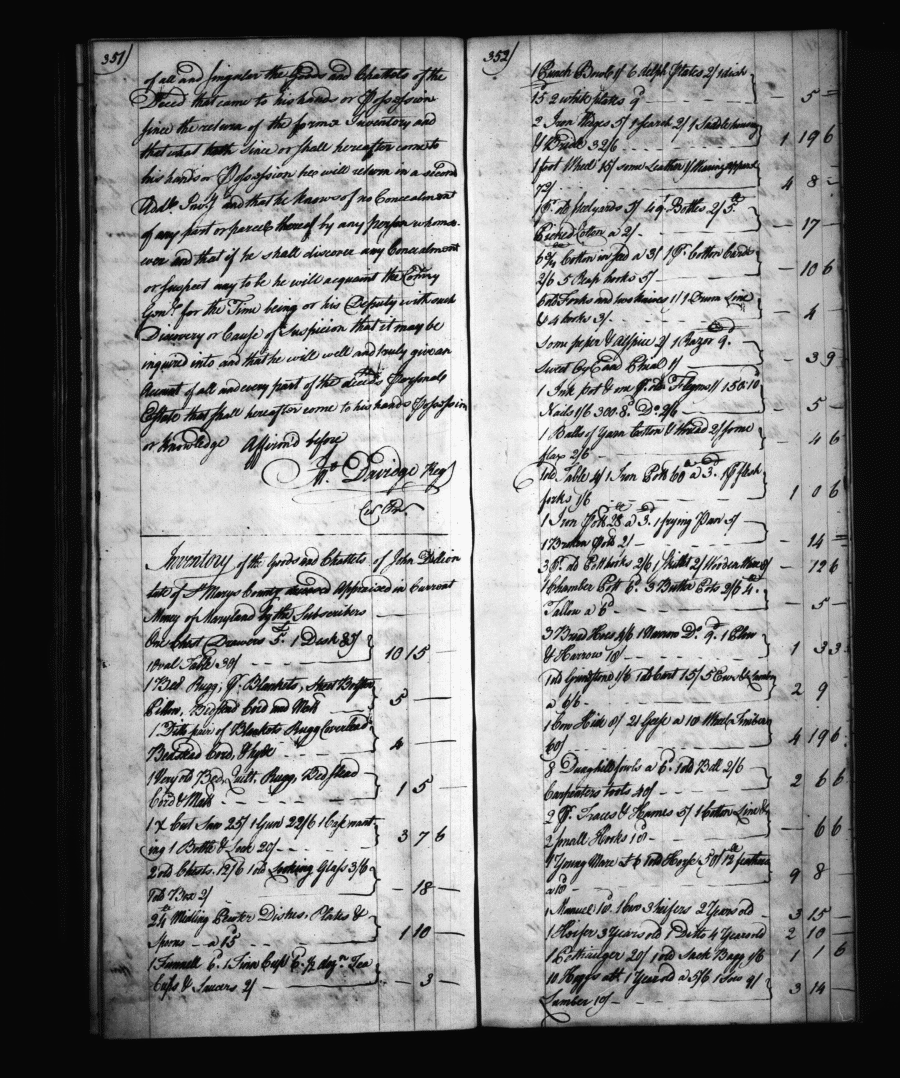 351/
of all and singular the Goods and Chattels of the
Deced that came to his hands or Possession
since the return of the former Inventory and
that what hath since or shall hereafter come to
his hands or Possession hee will return in a second
Add.l Inv.y and that he knows of no Concealment
of any part or parcel thereof by any person whomso
ever and that if he shall discover any Concealment
or suspect any to be he will acquaint the Comry
Gen.l for the Time being or his Deputy with such
Discovery or Cause of Suspicion that it may be
inquired into and that he will well and truly give an
Accout of all and every part of the deced's Personal
Estate that shall hereafter come to his hands Possession
or Knowledge Affirm'd before
Reg
Inventory of the Goods and Chattels of John
late of St Marys County deceased Appraised in Current
Money of Maryland by the Subscribers
One Chest Drawers 1 Desk
1 Oval Table 30/ 10 15 —
1 Bed Rugg, P. Blankets, Sheet Bolster
Pillow, Bedstead Cord and Matt 5 —
1 Ditto pair of Blankets Rugg Coverlead
Bedstead Cord, & Hyde 4 —
1 Very old Bed, Quilt, Rugg, Bedstead
Cord & Matt 1 5 —
1 X Cut Saw 25/ 1 Gun 22/6 1 Case
ing 1 Bottle & 20/ 3 7 6
2 old Chests 12/6 1 old Looking Glass 3/6
1 old Box 2/ — 18 —
24 lb Midling Pewter Dishes, Plates &
Spoons a 15d 1 10 —
1 Funnell 6d 1 Tinn Cup 6d ½ dozn Tea
Cups & Saucers 2/ — 3 —
352/
1 Punch Bowl 1/ 6 delph Plates 2/ 1 dish
15d 2 white plates 9d — 5 —
2 Iron Wedges 5/ 1 Search 2/ 1 Saddle
& Bridle 32/6 1 19 6
1 foot Wheel 15/ some Leather & Wearing Apparel
72/ 4 8 —
1 P. old Steelyards 3/ 4 qt Bottles 2/ 5 lb
Picked Cotton a 2/ — 17 —
Cotton in seed a 3/ 1 P. Cotton Cards
2/6 5 Reap hooks 5/ — 10 6
6 old Forks and two knives 1/ 1 Drum Line
& 4 hooks 3/ — 4 —
Some peper & Alspice 2/ 1 Razor 9d
— 3 9
1 Ink pot & one P. old 1/ 150 10d
Nails 1/6 300 8d Do 2/6 — 5 —
1 Balls of Yarn Cotton & thread 2/ some
flax 2/6 — 4 6
1 old Table 4/ 1 Iron Pott 60 lb a 3d 1 P. flesh
forks 1/6 1 0 6
1 Iron Pott 28 lb a 3d 1 frying Pan 5/
1 Broken Pott 2/ — 14 —
3 P. old Pott hooks 2/6 1 Skillet 2/ Wooden Ware 8/ — 12 6
1 Chamber Pott 6d 3 Butter Pots 2/6 4
Tallow a 6d — 5 —
3 Broad Hoes 4/6 1 Narrow Do 9d 1 Plow
& Harrow 18/ 1 3 3
1 old Grindstone 1/6 1 old Cart 15/ 5 Ews & Lambs
a 6/6 2 9 —
1 Cow Hide 8/ 21 Geese a 10d
60/ 4 19 6
8 Dunghill fowls a 6d 1 old Bell 2/6
Carpenters tools 40/ 2 6 6
2 P. Traces & Hames 5/ 1 Cotton Line &
2 small Hooks 18d — 6 6
1 Young Mare £6 1 old Horse 50/ 12 lb feathers
a 18d 9 8 —
1 1 Cow 3 heifers 2 Years old 3 15 —
1 Heifer 3 Years old 1 Ditto 4 Years old 2 10 —
20/ 1 old Sack Bagg 1/6 1 1 6
10 Hoggs abt 1 Year old a 5/6 1 Sow 9/
Lumber 10/ 3 14 —